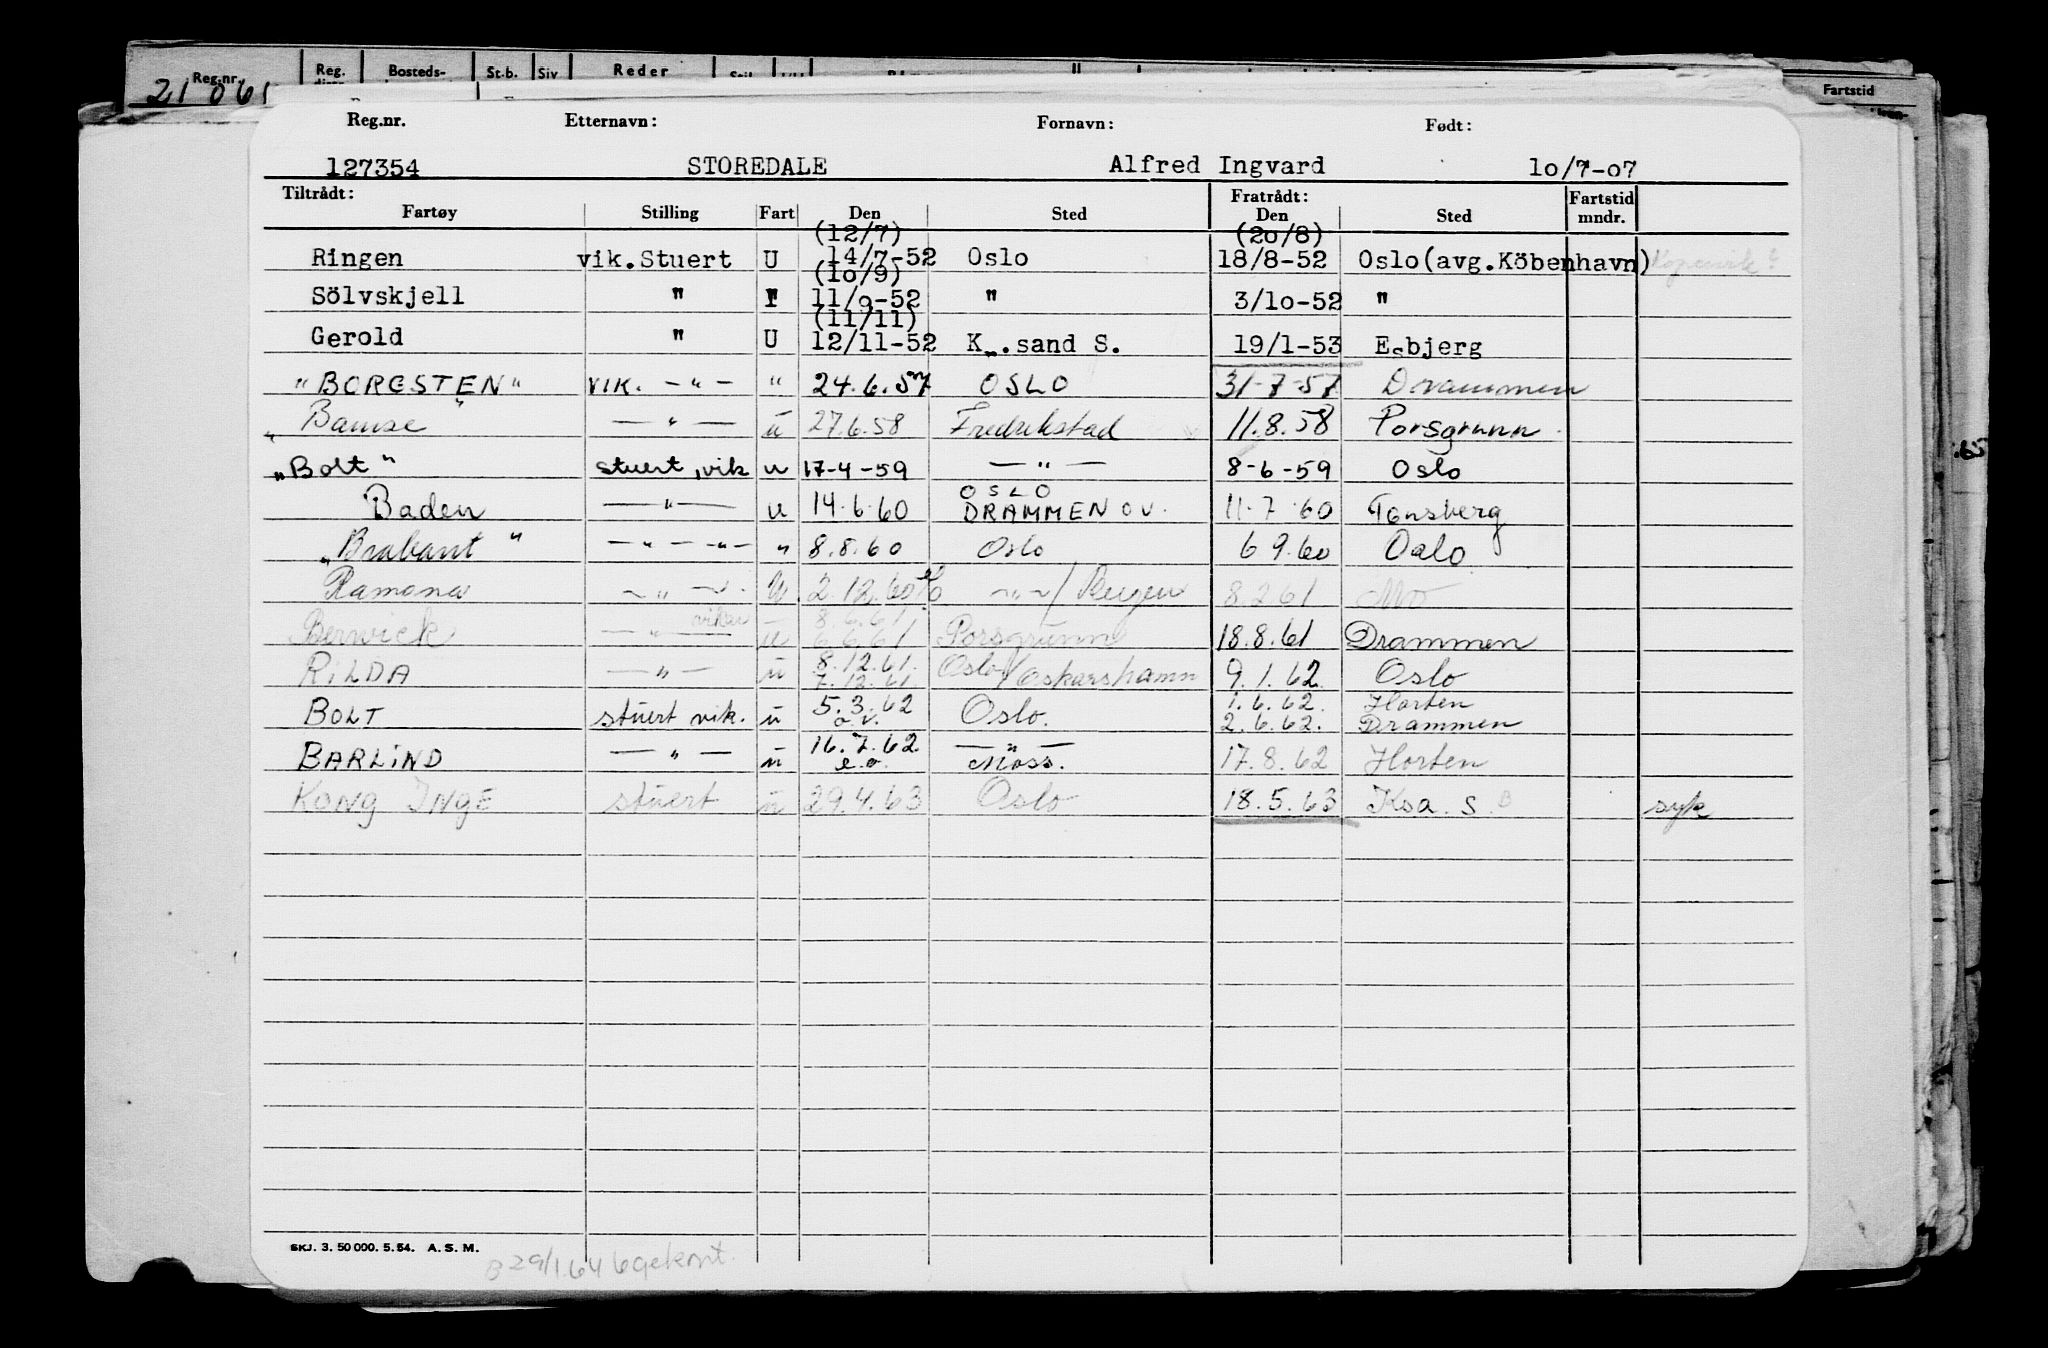 Reg.nr. Reg. Bosteds- St.b. Siv Reder Fartstid
21 061
Reg.nr. Etternavn: Fornavn: Født:
127354 STOREDALE Alfred Ingvard 1o/7-o7
Tiltrådt: Fratrådt: Fartstid
Fartøy Stilling Fart Den Sted Den Sted mndr.
(12/7) (2o/8)
Ringen vik.Stuert U 14/7-52 Oslo 18/8-52 Oslo(avg.Köbenhavn)
(1o/9)
Sölvskjell " 11/9-52 " 3/1o-52 "
(11/11)
Gerold " U 12/11-52 K .sand S. 19/1-53 Esbjerg
"BORGSTEN" VIK. - " - " 24.6.57 OSLO 31-7-57 Drammen
"Bamse" — " — u 27.6.58 Fredrikstad 11.8.58 Porsgrunn
"Bolt" stuert, vik u 17-4-59 — " — 8-6-59 Oslo
OSLO
Baden — " — u 14.6.60 DRAMMEN OV. 11.7.60 Tønsberg
"Brabant" - " - " - " 8.8.60 Oslo 6 9.60 Oslo
Ramona - " - U 2.12.60 - " - / 8.2.61 Mo
vikar 8.6.61
Berwick — " — u 6.6.61 Porsgrunn 18.8.61 Drammen
8.12.61
RILDA — " — u 7.12.61 Oslo/Oskarshamn 9.1.62 Oslo
5.3.62 1.6.62. Horten
BOLT stuert vik. u o.v. Oslo. 2.6.62. Drammen
16.7.62 — " —
BARLIND — " — u e.o. Moss. 17.8.62 Horten
KONG INGE stuert u 29.4.63 Oslo 18.5.63 Ksa. S. syk
.65
SKJ. 3. 50 000. 5.54. A. S. M.
B 29/1.64